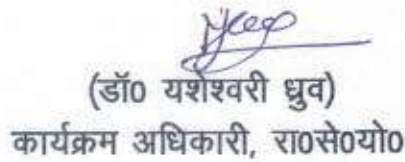 (डॉ0 यशेश्वरी ध्रुव)
कार्यक्रम अधिकारी, रा0से0यो0